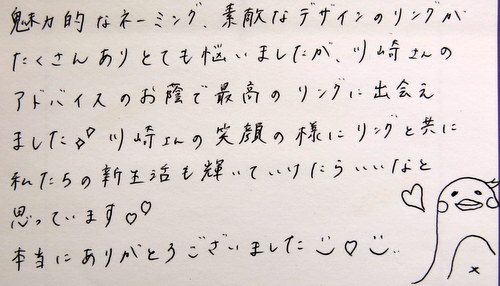 魅力的なネーミング、素敵なデザインのリングが
たくさんありとても悩いましたが、川崎さんの
アドバイスのお蔭で最高のリングに出会え
ました♡♡ 川崎さんの笑顔の様にリングと共に
私たちの新生活も輝いていけたらいいなと
思っています♡♡
本当にありがとうございました